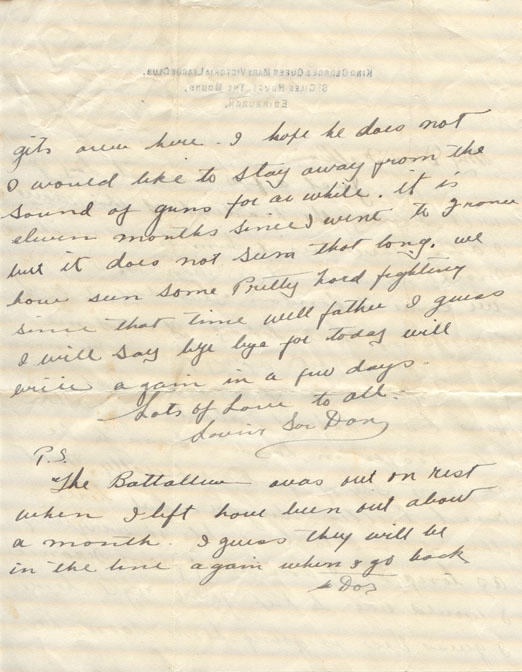 KING GEORGE & QUEEN MARY VICTORIA LEAGUE CLUB.
ST GILES HOUSE, THE MOUND,
EDINBURGH.
gits over here. I hope he does not
I would like to stay away from the
sound of guns for a while. it is
eleven months since I went to France
but it does not seem that long. we
have seen some Pretty hard fighting
since that time well father I guess
I will say bye bye for today will
write again in a few days.
Lots of Love to all.
Loving Son Don
P.S.
The Battallion was out on rest
when I left have been out about
a month. I guess they will be
in the line again when I go back